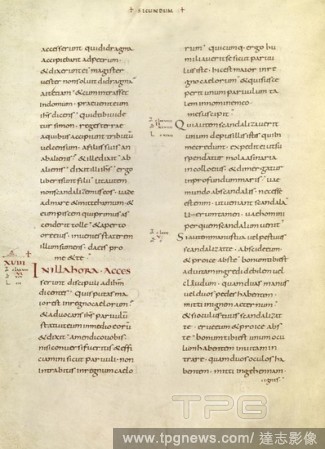 + SECUNDUM +
accesserunt qui didragma
accipiebant ad petrum
& dixerunt ei magister
vester non soluit didrag
& cum intrasset
indomum · praeuenit eum
simon · reges terrae
aquibus accipiunt tributum
uel censum · afiliis suis an
abalienis
non scandalizemus eos · uade
admare & mitte hamum · &
eum piscem qui primus as
ore
eius · inuenies staterem
illum sumens · da eis pro
me & te
XVIII
INILLAHORA · ACCES
serunt discipuli ad ihm
dicentes · quis putas ma
ior est inregno caelorum
& aduocans ihs paruulum
statuit eum inmedio eorum
& dixit · amen dico uobis
nisi conuersi fueritis & effi
ciamini sicut paruuli · non
intrabitis inregnum caelo
rum · quicumq · ergo hu
miliauerit se sicut paruu
lus iste · hic est maior inre
gno caelorum · & qui susce
perit unum paruulum ta
lem innomine meo ·
me suscipit
Qui autem scandalizauerit
unum depusillis istis qui in
me credunt · expedit ei ut sus
pendatur mola asinaria
incollo eius · & demergatur
inprofundum maris · uae
mundo ascandalis · necesse
est enim · ut ueniant scanda
la · uerumtamen · uae homini
per quem scandalum uenit
Si autem manus tua uel pes tuus
scandalizat te · abscide eum
& proice abs te · bonum tibi est
aduitam ingredi debilem uel
clodum · quam duas manus
uel duos pedes habentem
mitti inignem aeternum
& si oculus tuus scandalizat
te · erue eum & proice abs
te · bonum tibi est unum ocu
lum habentem inuitam in
trare · quam duos oculos ha
bentem · mitti ingehennam
ignis
TPG
www.tpgnews.com / 達志影像